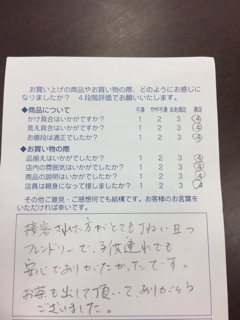 お買い上げの商品やお買い物の際、どのようにお感じに
なりましたか？ 4段階評価でお願いいたします。
◆商品について 不満 やや不満 まあ満足 満足
かけ具合はいかがですか？ 1 2 3 4
見え具合はいかがですか？ 1 2 3 4
お値段は適正でしたか？ 1 2 3 4
◆お買い物の際
品揃えはいかがでしたか？ 1 2 3 4
店内の雰囲気はいかがでしたか？ 1 2 3 4
商品の説明はいかがでしたか？ 1 2 3 4
店員は親身になって接しましたか？ 1 2 3 4
その他ご意見・ご感想何でも結構です。お客様のお言葉を
いただければ幸いです。
接客された方がとてもきれい且つ
フレンドリーで、子供連れでも
安心でありがたかったです。
お茶も出して頂いて、ありがとう
ございました。